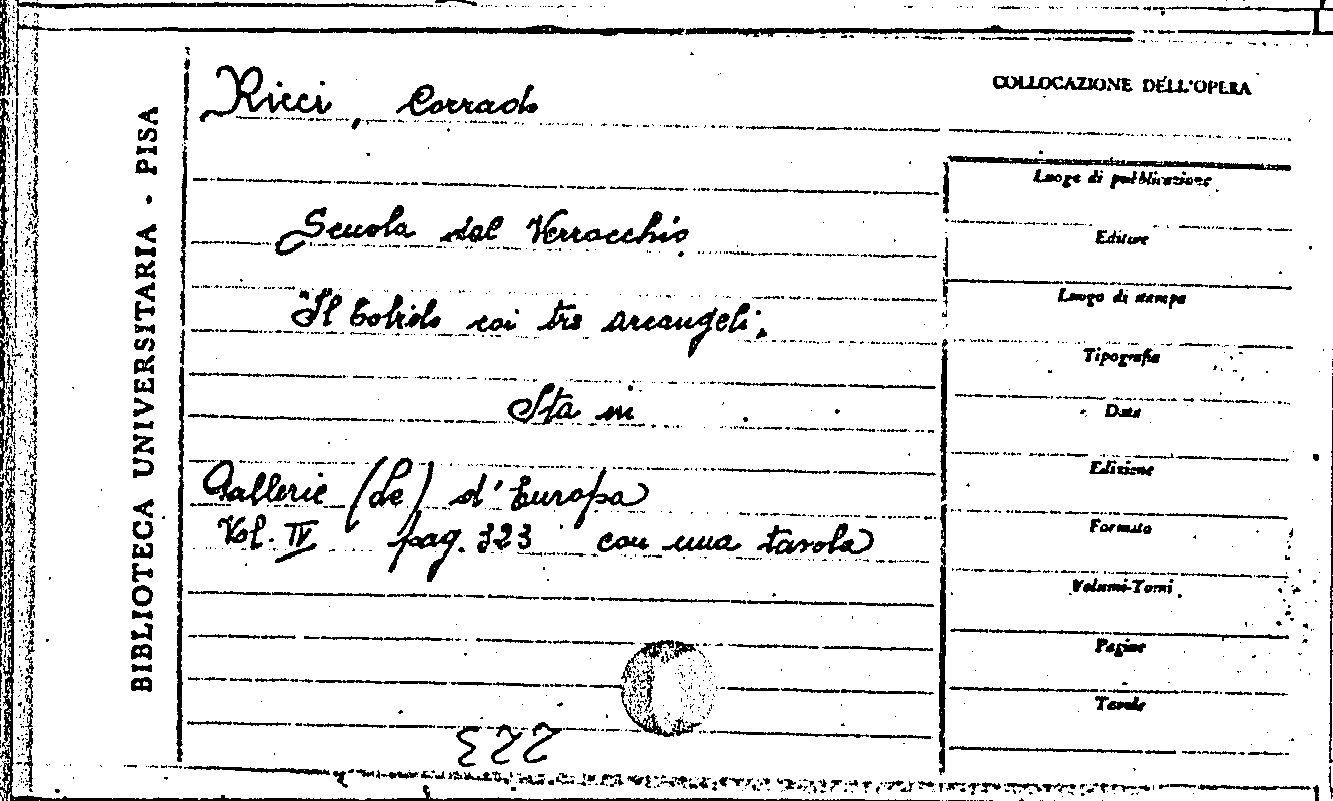 BIBLIOTECA UNIVERSITARIA - PISA
Ricci, Corrado
COLLOCAZIONE DELL'OPERA
Luogo di pubblicazione
Scuola del Verrocchio
Editore
"Il Tobiolo coi tre arcangeli.
Luogo di stampa
Tipografia
Sta in
Data
Edizione
Gallerie (Le) d'Europa
Vol. IV pag. 323 con una tavola
Formato
Volumi-Tomi
Pagine
Tavole